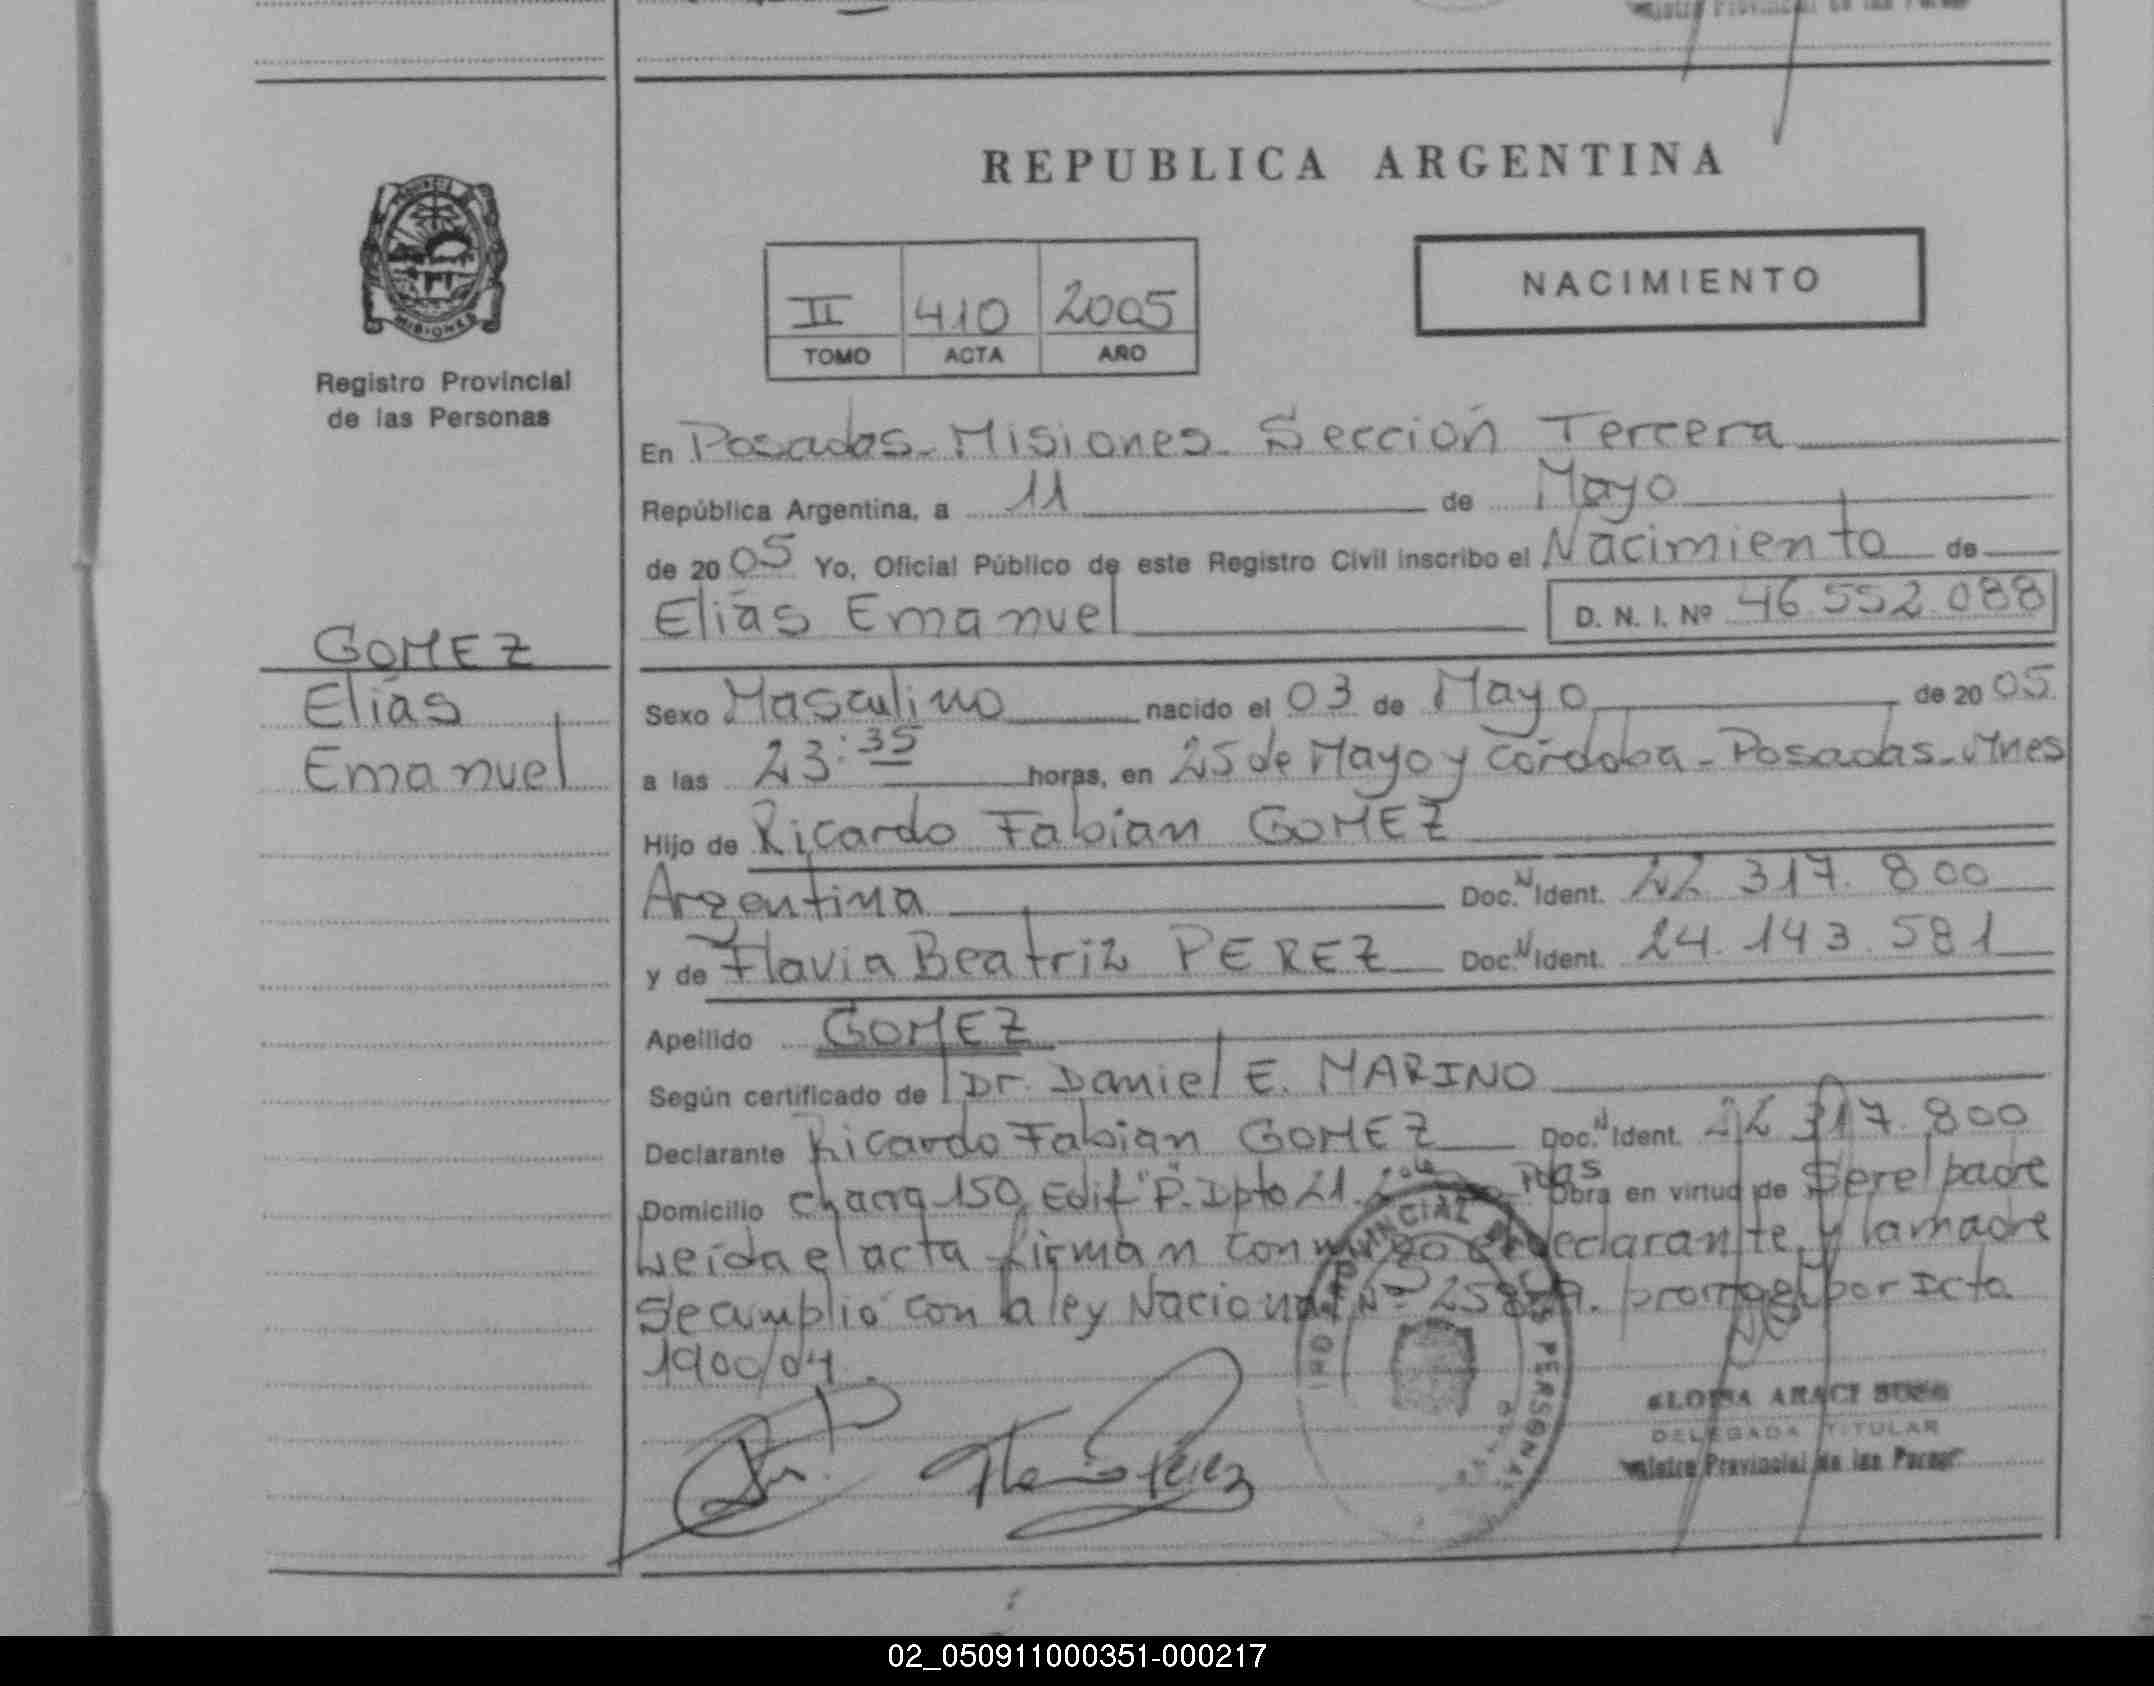 REPUBLICA ARGENTINA
PROVINCIA
MISIONES
Registro Provincial
de las Personas
II 410 2005
TOMO ACTA AÑO
NACIMIENTO
En Posadas - Misiones - Sección Tercera
República Argentina, a 11 de Mayo
de 20 05 Yo, Oficial Público de este Registro Civil inscribo el Nacimiento de
Elías Emanuel D. N. I. Nº 46.552.088
GOMEZ
Elías
Emanuel
Sexo Masculino nacido el 03 de Mayo de 20 05
a las 23:35 horas, en 25 de Mayo y Córdoba - Posadas - Mnes
Hijo de Ricardo Fabian GOMEZ
Argentina Doc. N Ident. 22.317.800
y de Flavia Beatriz PEREZ Doc. N Ident. 24.143.581
Apellido GOMEZ
Según certificado de Dr. Daniel E. MARINO
Declarante Ricardo Fabian GOMEZ Doc. N Ident. 22.317.800
Domicilio Chacra 150 Edif "P" Dpto 21. Pdas Obra en virtud de Ser el padre
Leída el acta firman conmigo el declarante y la madre
Se cumplió con la ley Nacional Nº por Dcto
1900/04.
Flavia Perez
DELEGADA TITULAR
Registro Provincial de las Person
02_050911000351-000217